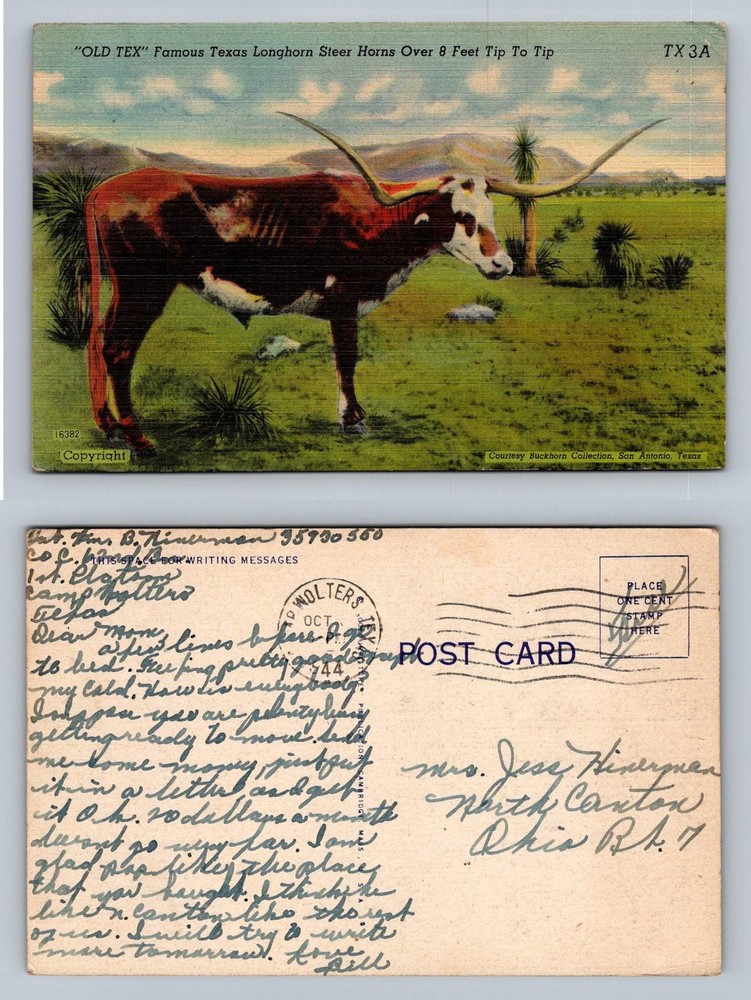 "OLD TEX" Famous Texas Longhorn Steer Horns Over 8 Feet Tip To Tip
TX 3A
16382
Copyright
Courtesy Buckhorn Collection, San Antonio, Texas
Pvt. Wm. B. Hinerman 35930560
Co C.
THIS SPACE FOR WRITING MESSAGES
1st. Platoon
Camp Wolters
Texas
Dear Mom,
a few lines before I go
to bed. Keeping pretty good
my cold. How is everybody
I suppose you are plenty busy
getting ready to move. Send
me some money, just put
it in a letter as I get
it O.k. 20 dollars a month
doesnt go very far. I am
glad pop likes the place
that you bought. I think he
like N. Canton like the rest
of us. I will try to write
more tomorrow. Love
Bill
WOLTERS, TEX.
OCT
1944
POST CARD
PLACE
ONE CENT
STAMP
HERE
CAMBRIDGE, MASS.
Mrs. Jess Hinerman
North Canton
Ohio Rt. 7